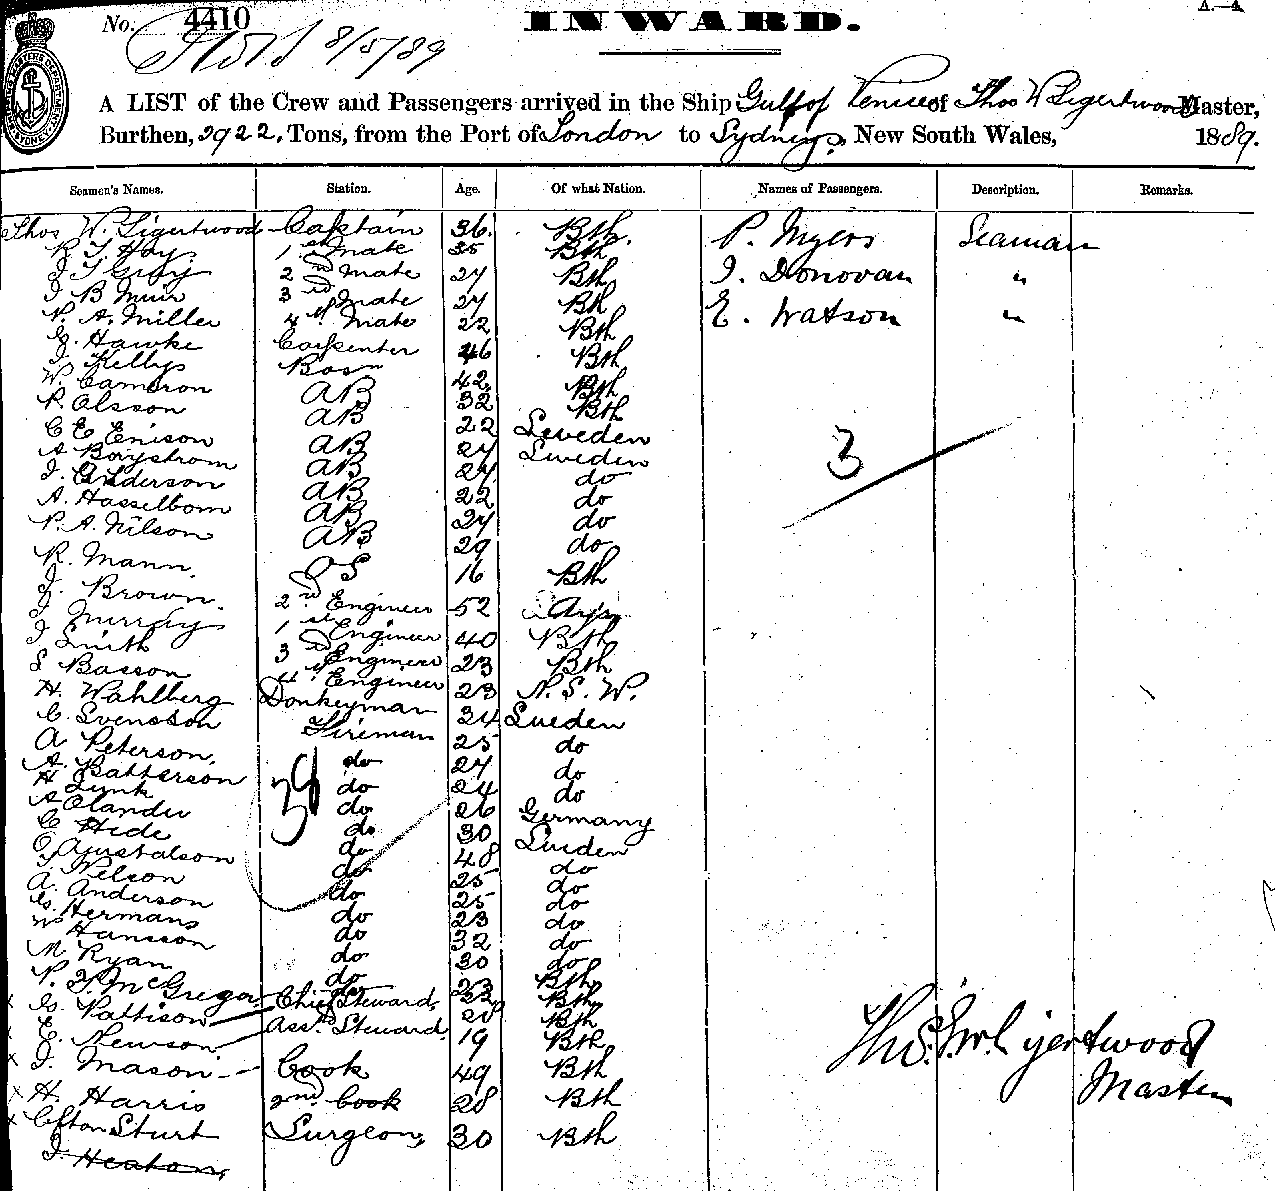 No. 4410
8/5/89
INWARD.
A LIST of the Crew and Passengers arrived in the Ship Gulf of Venice of Thos W Ligertwood Master,
Burthen, 2922 Tons, from the Port of London to Sydney, New South Wales, 1889.
Seamen's Names. Station. Age. Of what Nation. Names of Passengers. Description. Remarks.
Thos W. Ligertwood Captain 36 Bth. P. Myers Seaman
R. T. Hay 1st Mate 35 Bth
J. T. Gray 2nd Mate 27 Bth J. Donovan "
J B Muir 3rd Mate 27 Bth
P. A. Miller 4th Mate 22 Bth E. Watson "
G. Hawke Carpenter 46 Bth
J Kelly Bosn 42 Bth
W. Cameron AB 32 Bth
P. Olsson AB 22 Sweden
C E Enison AB 27 Sweden
A Borgstrom AB 27 do
J. Anderson AB 22 do
A. Hasselbom AB 27 do
P. A. Nilson AB 29 do
3
R. Mann OS 16 Bth
J. Brown 2nd Engineer 52
J Murray 1st Engineer 40 Bth
J Smith 3rd Engineer 23 Bth
S Basson 4th Engineer 23 N. S. W.
H. Wahlberg Donkeyman 34 Sweden
C. Svensson Fireman 25 do
A Peterson do 27 do
A. Batterson do 24 do
H Junk do 26 Germany
A Olander do 30 Sweden
C Hide do 48 do
O Gustafson do 25 do
J Nelson do 25 do
A. Anderson do 23 do
G. Hermans do 32 do
W Hansson do 30 do
M Ryan do 23 Bth
38
P. F. McGregor Chief Steward Bth
G. Pattison Asst. Steward Bth
E. Newson 19 Bth
J. Mason Cook 49 Bth
H. Harris 2nd Cook 28 Bth
Clifton Sturt Surgeon 30 Bth
J. Heaton
Thos. W Ligertwood
Master